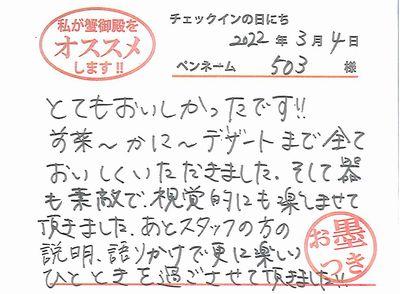 私が蟹御殿を
オススメ
します!!
チェックインの日にち
2022年3月4日
ペンネーム 503 様
とてもおいしかったです!!
前菜〜かに〜デザートまで全て
おいしくいただきました。そして器
も素敵で、視覚的にも楽しませて
頂きました。あとスタッフの方の
説明、語りかけで更に楽しい
ひとときを過ごさせて頂きました!!
お墨
つき